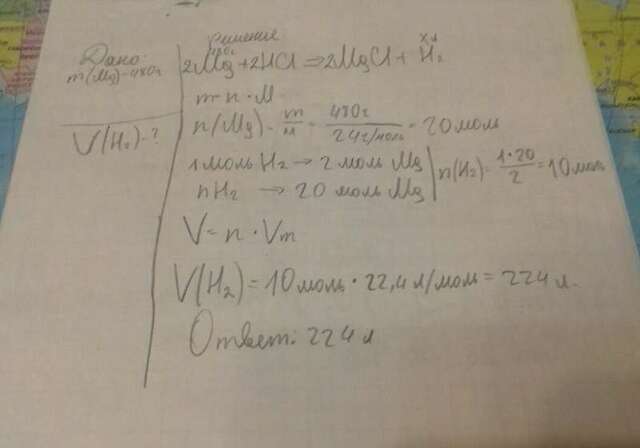 Дано:
m(Mg)-480г
V(H₂)-?
Решение
480г х л
2Mg+2HCl=>2MgCl+H₂
m=n·M
n(Mg)=m/M=480г/24г/моль=20моль
1 моль H₂→2 моль Mg
nH₂→20 моль Mg
n(H₂)=1·20/2=10моль
V=n·Vm
V(H₂)=10моль·22,4л/моль=224л.
Ответ: 224л